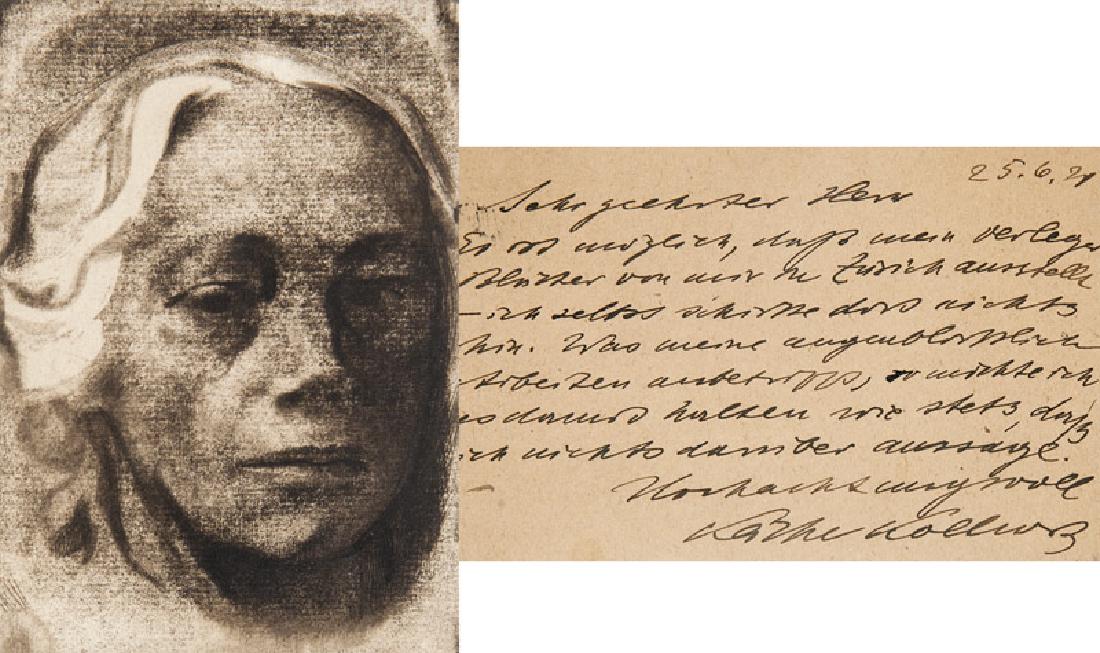 25.6.21
Sehr geehrter Herr
Es ist möglich, daß mein Verleger
Blätter von mir in Zürich ausstellt
– ich selbst schicke dort nichts
hin. Was meine augenblicklichen
Arbeiten anbetrifft, so möchte ich
es damit halten wie stets, daß
ich nichts darüber aussage.
Hochachtungsvoll
Käthe Kollwitz